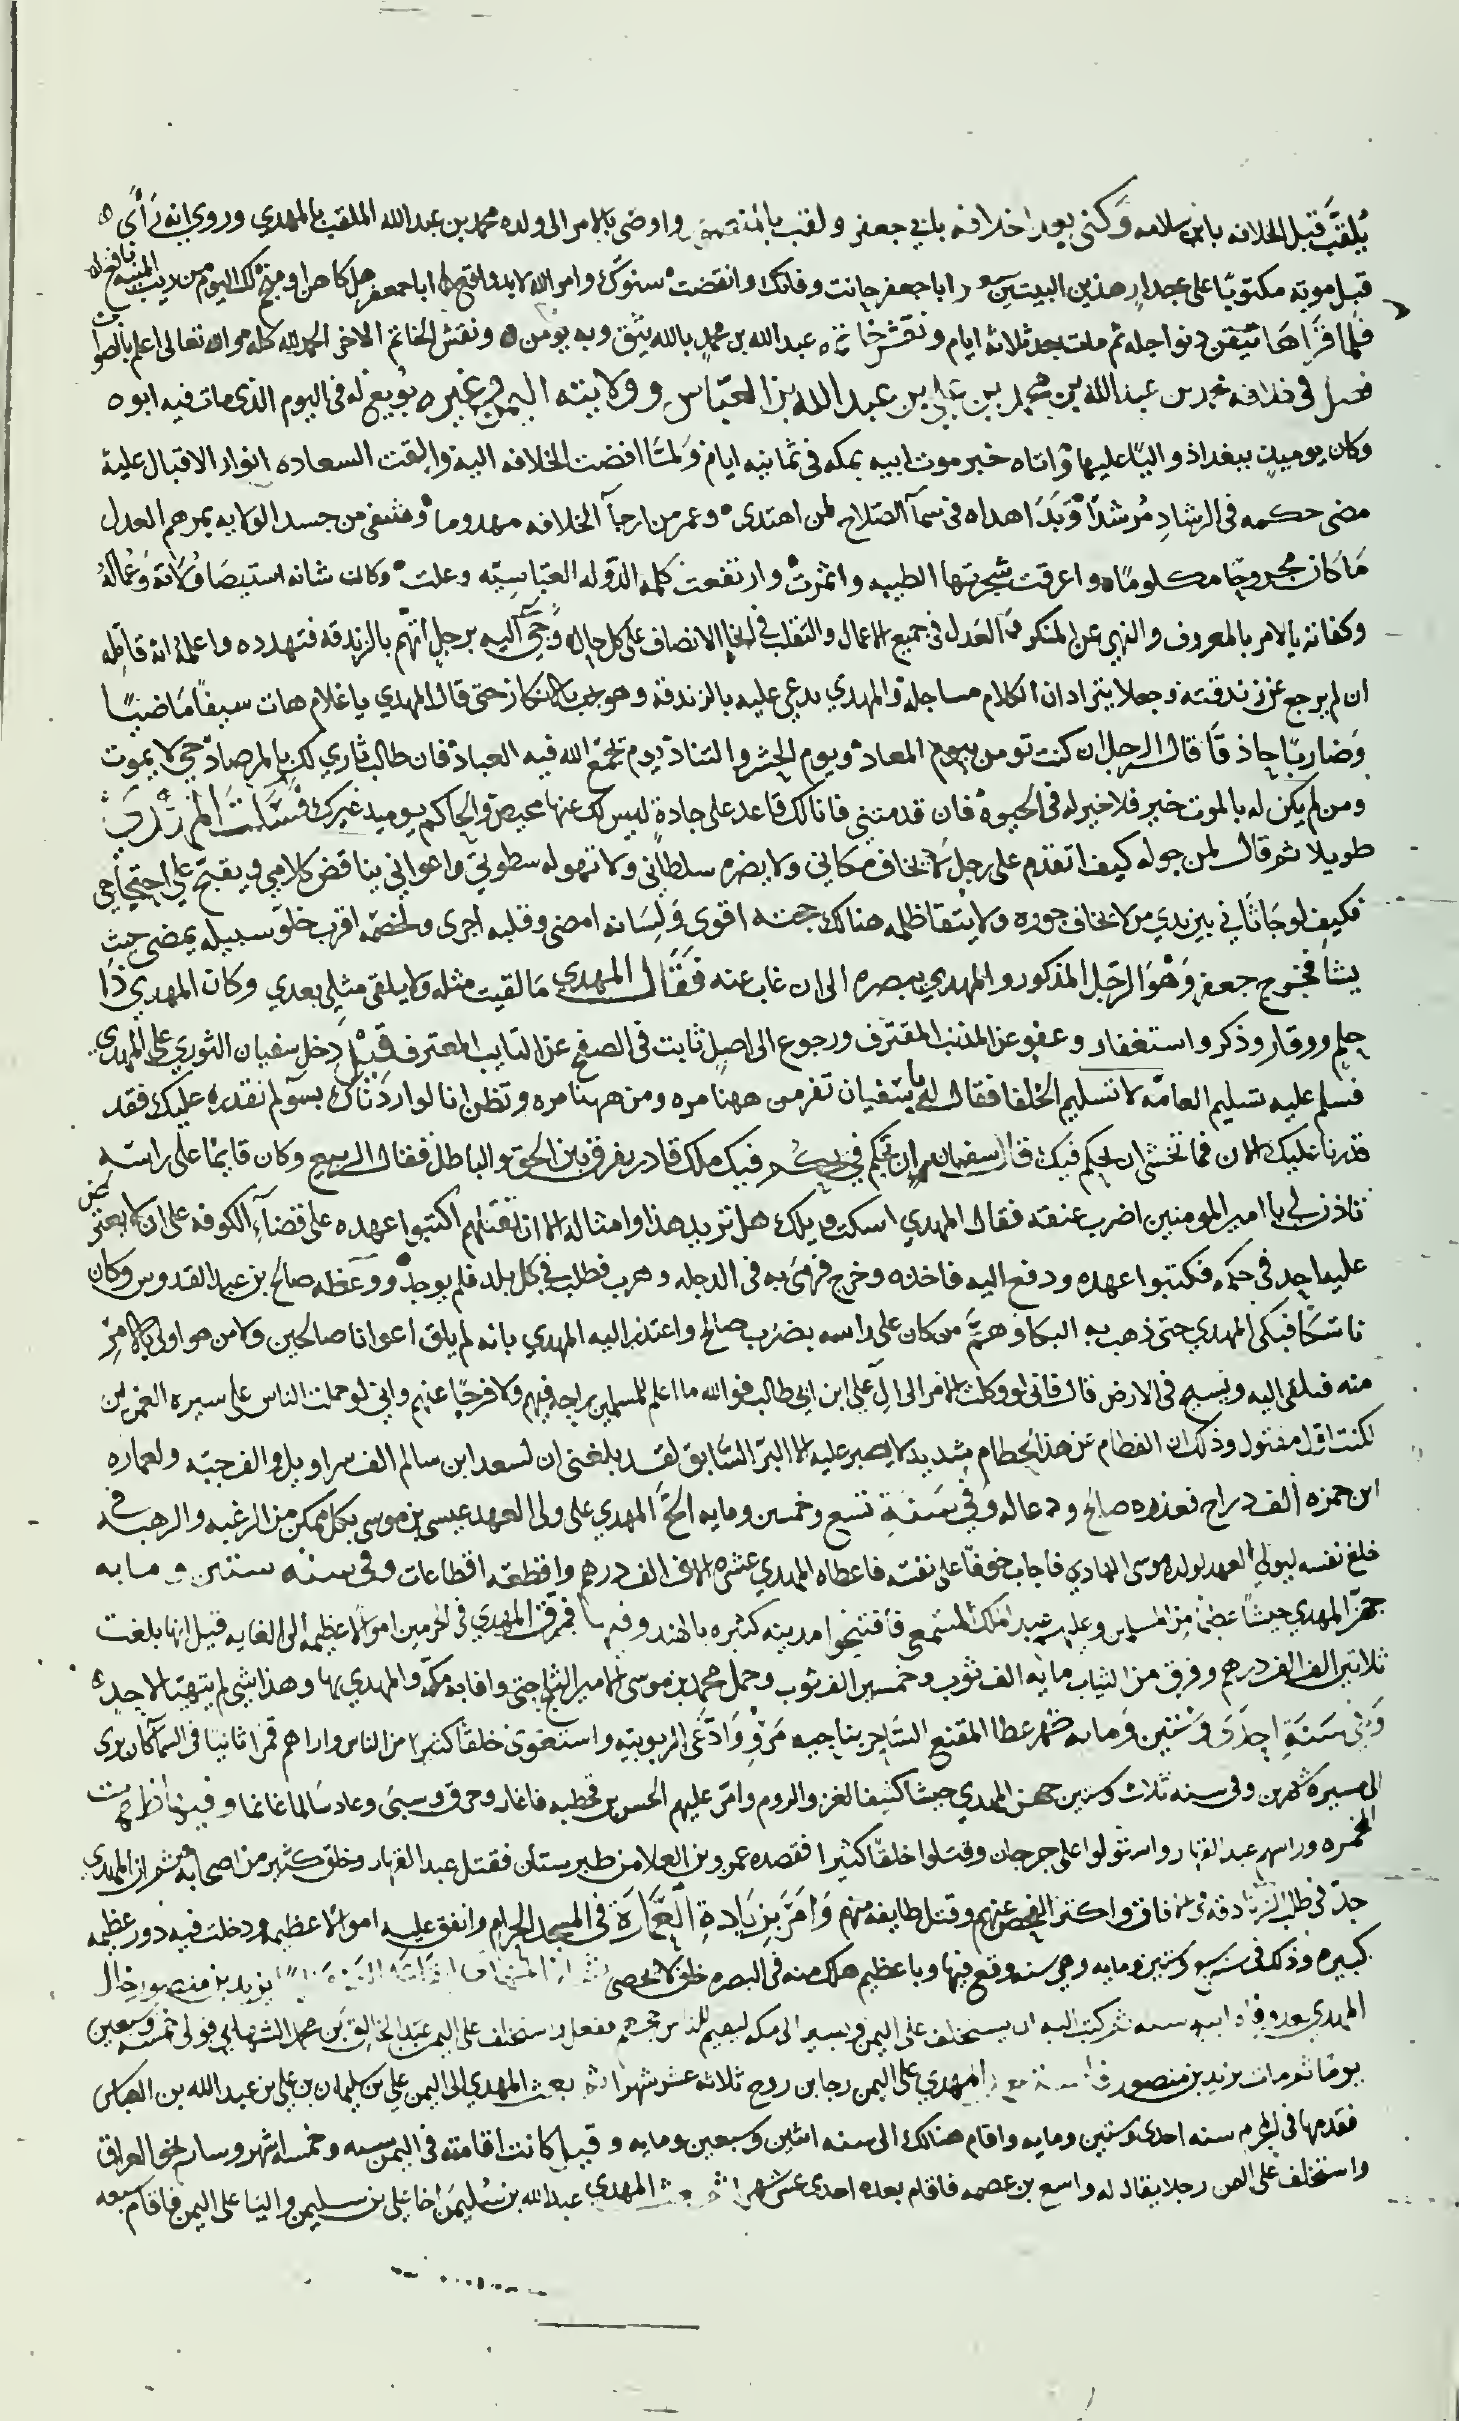 يُلقَّب قبل الخلافه بابن سلامه وكنى بعد اخلافه بابي جعفر ولقب بالمنصور واوصى بالامر الى ولده محمد بن عبد الله الملقب بالمهدي وروي انه رَأى
قبل موته مكتوبًا على جدارٍ هذين البيتين ابا جعفر حانت وفاتك وانقضت سنوك وامر الله لابد واقع ابا جعفر هل كاهن او منجم لك اليوم من ريب المنيه نافع
فلما قراها تيقن دنو اجله ثم مات بعد ثلاثه ايام ونقش خاتمه عبد الله بن محمدٍ بالله يثق وبه يومن ونقش الخاتم الاخر الحمد لله كله والله تعالى اعلم بالصواب
فصل في خلافه محمد بن عبد الله بن محمد بن علي بن عبد الله بن العبّاسِ وولايته اليمن وغيره بويع له في اليوم الذي مات فيه ابوه
وكان يوميذٍ ببغداذ واليًا عليها واتاه خبر موت ابيه بمكه في ثمانيه ايام ولمّا افضت الخلافه اليه والقت السعاده انوار الاقبال عليه
مضى حكمه في الرشادِ مُرشدًا وبَدَا هداه في سمآ الصّلاح لمن اهتدى وعمر من ارجآ الخلافه مهدوما وشفى من جسد الولايه بمرهم العدل
مَا كان مجروحًا مكلومًا واعرقت شجرتها الطيبه واثمرتْ وارتفعت كلمه الدّوله العبّاسيّه وعلتْ وكان شانه استيصَا ولاته وعُمّاله
وكفاته بالامر بالمعروف والنهي عن المنكر والعَدل في جميع الاعمال والتقلب في الانصاف على كل حال وجي اليه برجلٍ اتهم بالزندقه فتهدده واعلمه انه قاتِله
ان لم يرجع عن زندقته وجعلا يترادان الكلام مساجله والمهدي يدعي عليه بالزندقه وهو يجيب بالانكار حتى قال المهدي يا غلام هات سيفًا مَاضيًا
وَضاربًا حاذقًا قال الرجل ان كنت تومن بيوم المعاد ويوم الحشر والتناد يوم يجمع الله فيه العباد فان طالب ثاري لك بالمرصاد حي لا يموت
ومن لم يكن له بالموت خبر فلا خير له في الحيوه فان قدمتني فانا لك قاعد على جادةٍ ليس لك عنها محيص والحاكم يوميذ غيرك فسكت المهدي
طويلا ثم قال لمن حوله كيف اتقدم على رجلٍ لا يخاف مكاني ولا يضره سلطاني ولا تهوله سطوتي واعواني يناقض كلامي ويقبح علي احتجاجي
فكيف لو جاثاني بين يدي من لا يخاف جوره ولا يتقا ظلمه هنالك حجته اقوى وَلسانه امضى وقلبه اجرى وخصمه اقرب خلّو سبيله يمضي حيث
يشا فخرج جعفر وَهُوَ الرّجل المذكور والمهدي يبصره الى ان غاب عنه فقال المهدي مَا لقيت مثله ولا يلقى مثلي بعدي وكان المهدي ذا
حلمٍ ووقار وذكر واستغفار وعفوٍ عن المذنب المقترف ورجوع الى اصلٍ ثابت في الصفح عن التايب المعترف قيل دخل سفيان الثوري على المهدي
فسلم عليه تسليم العامّه لا تسليم الخلفا فقال له يا سفيان تفر من ههنا مره ومن ههنا مره وتظن انا لو اردناك بسو لم نقدر عليك فقد
قدرنا عليك الان فما تخشى ان نحكم فيك قال سفيان ان تحكم في يحكم فيك ملك قادر يفرق بين الحق والباطل فقال الربيع وكان قايمًا على راسه
تاذن لي يا امير المومنين اضرب عنقه فقال المهدي اسكت ويلك هل تريد هذا وامثاله الا ان نقتلهم اكتبوا عهده على قضآ الكوفه على ان لا يعترض
عليه احد في حكم فكتبوا عهده ودفع اليه فاخذه وخرج فرمى به في الدجله وهرب فطلب في كل بلد فلم يوجد ووعظه صالح بن عبد القدوس وكان
ناسكًا فبكى المهدي حتى ذهب به البكا وهمَّ من كان على راسه بضرب صالح واعتذر اليه المهدي بانه لم يلق اعوانا صالحين ولا من هو اولى بالامر
منه فيلقى اليه ويسيح في الارض قال فاني لو وكلت الامر الى الِ علي ابن ابي طالب فوالله ما اعلم للمسلمين راحه فيهم ولا فرجًا عنهم واني لو حملت الناس على سيره العمرين
لكنت اوّل مقتول وذلك ان الفطام عن هذا الحطام شديد لا يصبر عليه الا البرّ السّابق لقد بلغني ان لسعد ابن سالم الف سراويل والف جبه ولعماره
ابن حمزه الف دراج فعذره صالح ودعا له وفي سَنة تسع وخمسين ومايه الحّ المهدي على ولي العهد عيسى بن موسى بكل ممكن من الرغبه والرهبه في
خلع نفسه ليولي العهد لولده موسى الهادي فاجاب خوفًا على نفسه فاعطاه المهدي عشره الاف الف درهم واقطعه اقطاعات وفي سنه ستين ومايه
جهّز المهدي جيشًا عظيمًا من المسلمين وعليهم عبد الملك المسمعي فافتتحوا مدينه كبيره بالهند وفيها فرق المهدي في الحرمين اموالا عظيمه الى الغايه قيل انها بلغت
ثلاثين الف الف درهم وفرق من الثياب مايه الف ثوب وخمسين الف ثوب وحمل محمد بن موسى الامير الثلج حتى وافا به مكه والمهدي بها وهذا شي لم يتهيا لاحدٍ
وفي سَنة احدى وستين ومايه ظهر عطا المقنع السّاحر بناحيه مَرو وَادّعَى الربوبيّه واستغوى خلقًا كثيرا من الناس واراهم قمرا ثانيا في السما كان يرى
الى مسيره شهرين وفي سنه ثلاث وستين جهز المهدي جيشا كثيفا لغزو الروم وامر عليهم الحسن بن قحطبه فاغار وحرق وسبى وعاد سالما غانما وفيها ظهرت
المحمره وراسهم عبد القهار واستولوا على جرجان وقتلوا خلقًا كثيرا فقصده عمرو بن العلا من طبرستان فقتل عبد القهار وخلق كثير من اصحابه ثم ان المهدي
جدّ في طلب الزنادقه في الافاق واكثر الفحص عنهم وقتل طايفه منهم وَامَرَ بزيَادةِ العمَارَة في المسجد الحرام وانفق عليه اموالا عظيمه ودخلت فيه دور عظيمه
كبيره وذلك في سنه سبع وستين ومايه وهي سنه وقع فيها وبا عظيم هلك منه في البصره خلق لا يحصى يزيد بن منصور خال
المهدي كتب اليه ان يستخلف على اليمن ويسير الى مكه ليقيم للناس حجهم ففعل واستخلف على اليمن عبد الخالق بن محمد الشهابي فولى خمسه وسبعين
يوما ثم مات يزيد بن منصور المهدي على اليمن رجا بن روح ثلاثه عشر شهرا ثم بعث المهدي الى اليمن علي بن سليمان بن علي بن عبد الله بن العباس
فقدمها في المحرم سنه احدى وستين ومايه واقام هنالك الى سنه اثنين وسبعين ومايه وقيل كانت اقامته في اليمن سنه وخمسه اشهر وسار نحو العراق
واستخلف على اليمن رجلا يقال له واسع بن عصمه فاقام بعده احدى عشر شهرا ثم بعث المهدي عبد الله بن سُليمَن اخا علي بن سليمن واليًا على اليمن فاقام